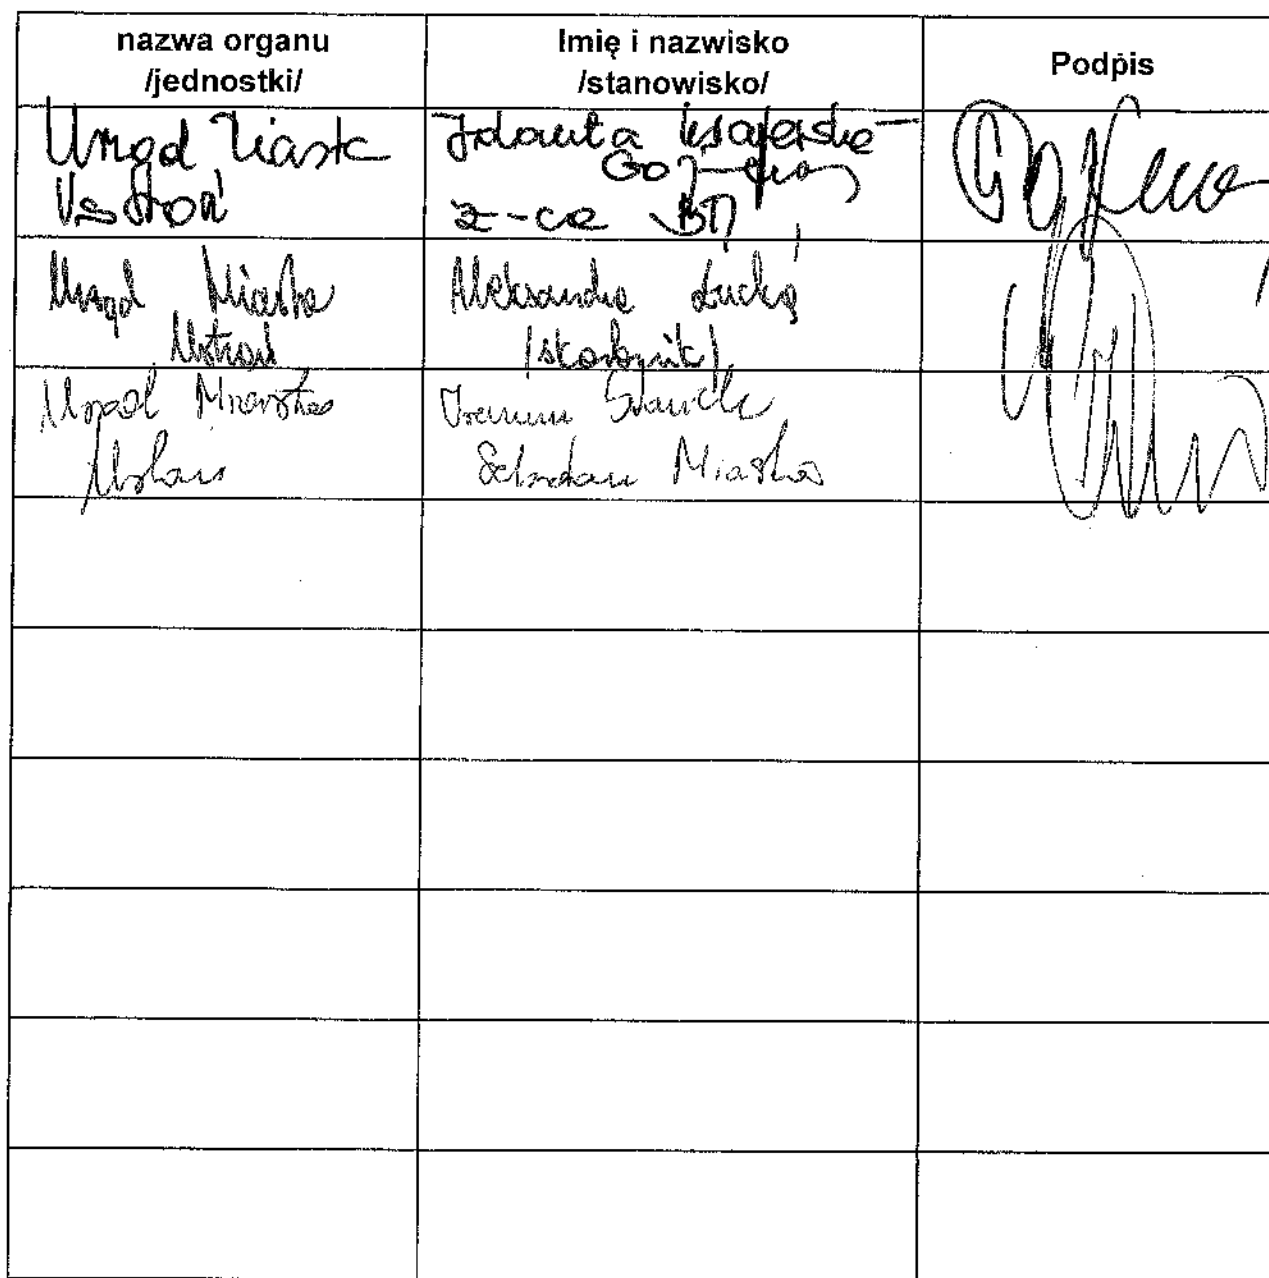 nazwa organu
/jednostki/
Imię i nazwisko
/stanowisko/
Podpis
Urząd Miasta
Ustroń
Jolanta Krajewska-
z-ca BM
Urząd Miasta
Ustroń
Aleksandra Łuckoś
/skarbnik/
Urząd Miasta
Ustroń
Ireneusz Staniek
Sekretarz Miasta